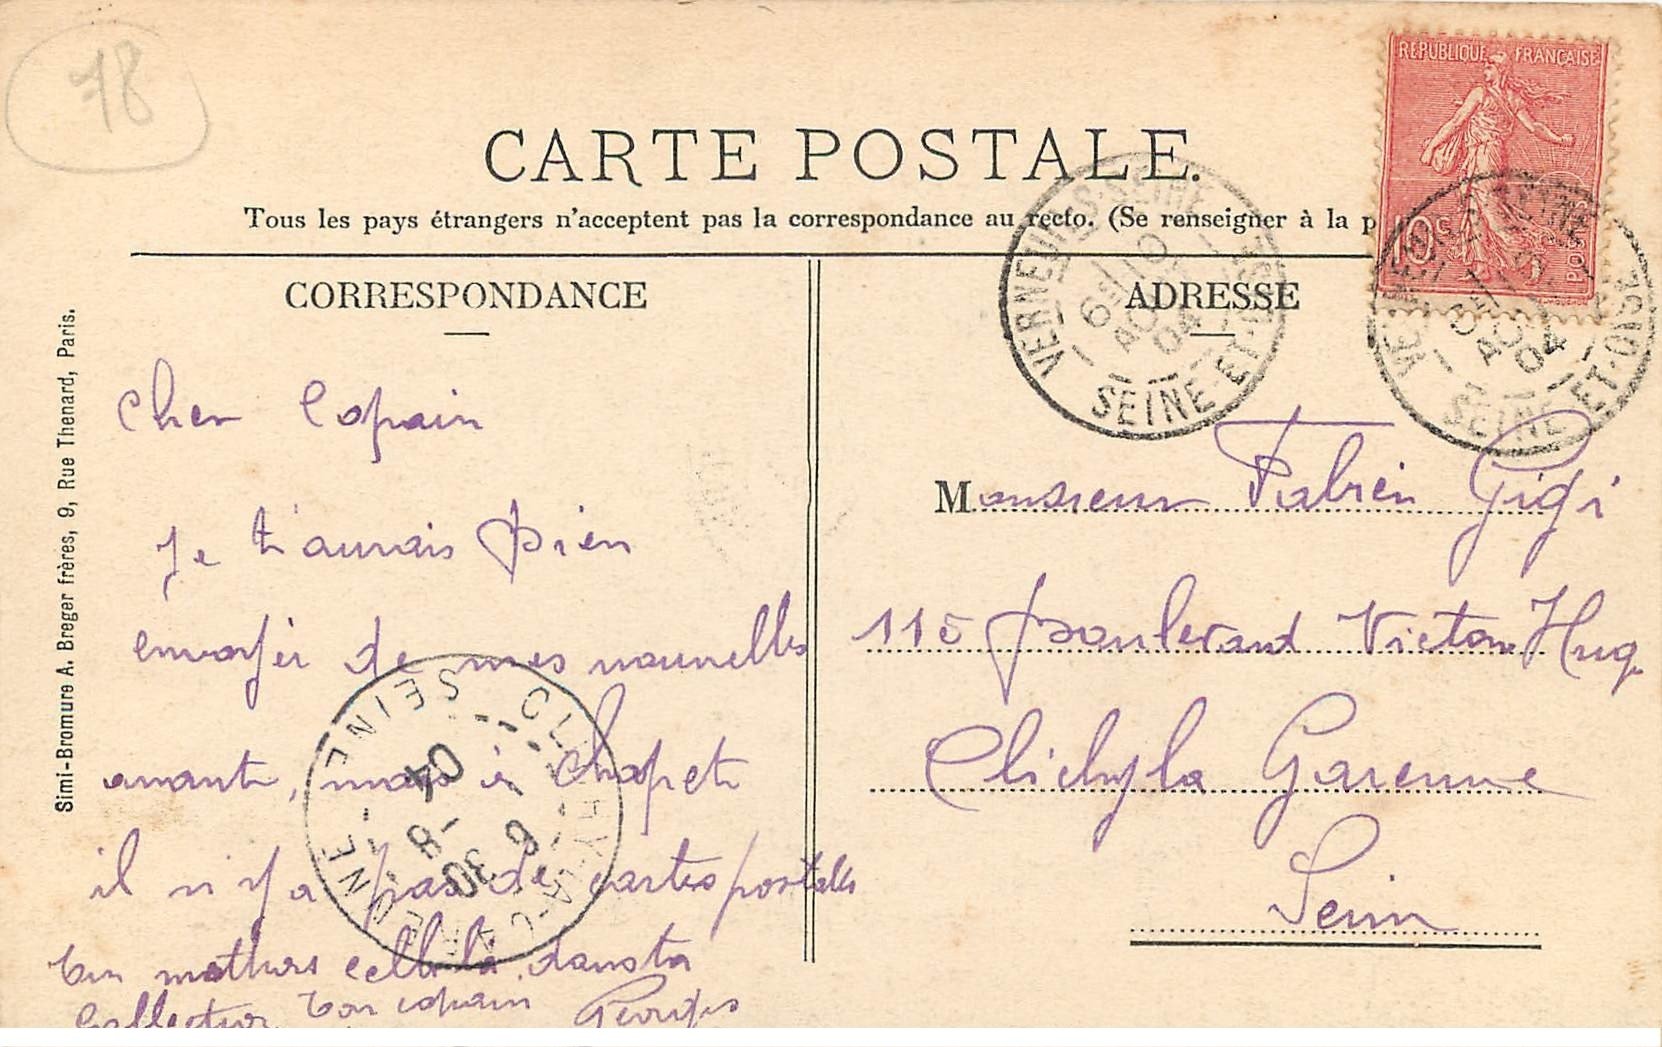 78
REPUBLIQUE FRANÇAISE
10 c POSTES
CARTE POSTALE.
Tous les pays étrangers n'acceptent pas la correspondance au recto. (Se renseigner à la p
CORRESPONDANCE
ADRESSE
VERNEUIL-S-SEINE
SEINE-ET-OISE
6E 10
AOUT
04
SEINE-ET-OISE
AOUT
04
Simi-Bromure A. Breger frères, 9, Rue Thenard, Paris.
Cher Copain
Je t'aurais bien
envoyér de mes nounelles
avant, mais à Chapet
il n'y a pas de cartes postalles
tu mettras celle la dans ta
Collection ton copain Georges
Monsieur Fabien Gigi
115 boulevard Victor Hugo
Clichy la Garenne
Seine
CLICHY-LA-GARENNE
SEINE
6 30
-8
04